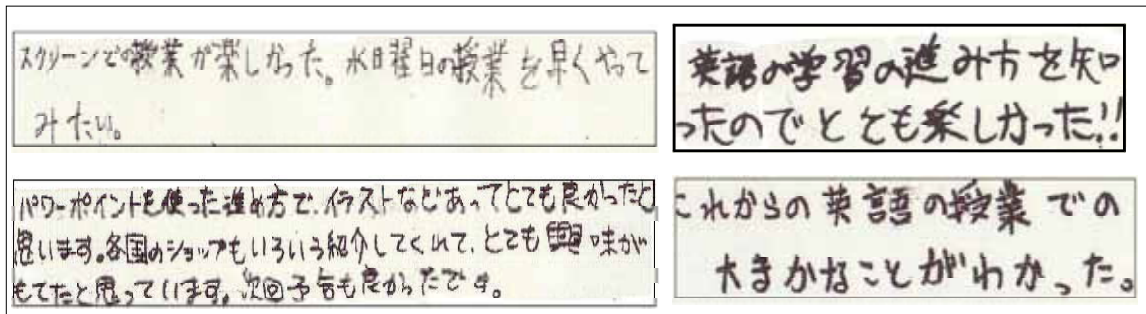 スクリーンでの授業が楽しかった。水曜日の授業を早くやって
みたい。
英語の学習の進み方を知
ったのでととも楽しかった!!
パワーポイントを使った進め方で、イラストなどあってとても良かったと
思います。各国のショップもいろいろ紹介してくれて、とても興味が
もてたと思っています。次回予告も良かったです。
これからの英語の授業での
大まかなことがわかった。